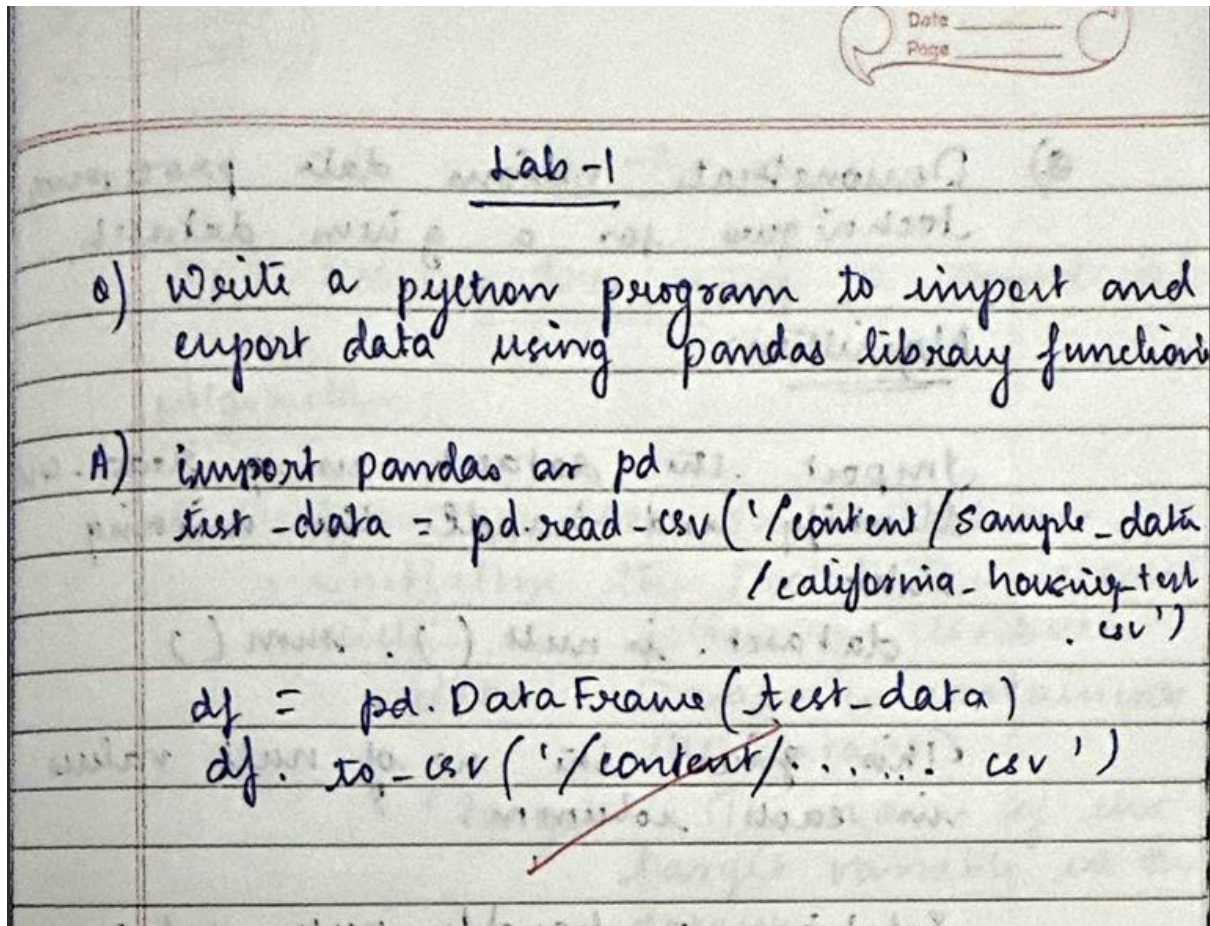 Date
Page
Lab-1
Q) Write a python program to import and
export data using pandas library function
A) import pandas as pd
test_data = pd.read_csv('/content/sample_data
/california_housing_test
.csv')
df = pd.DataFrame(test_data)
df.to_csv('/content/....... csv')